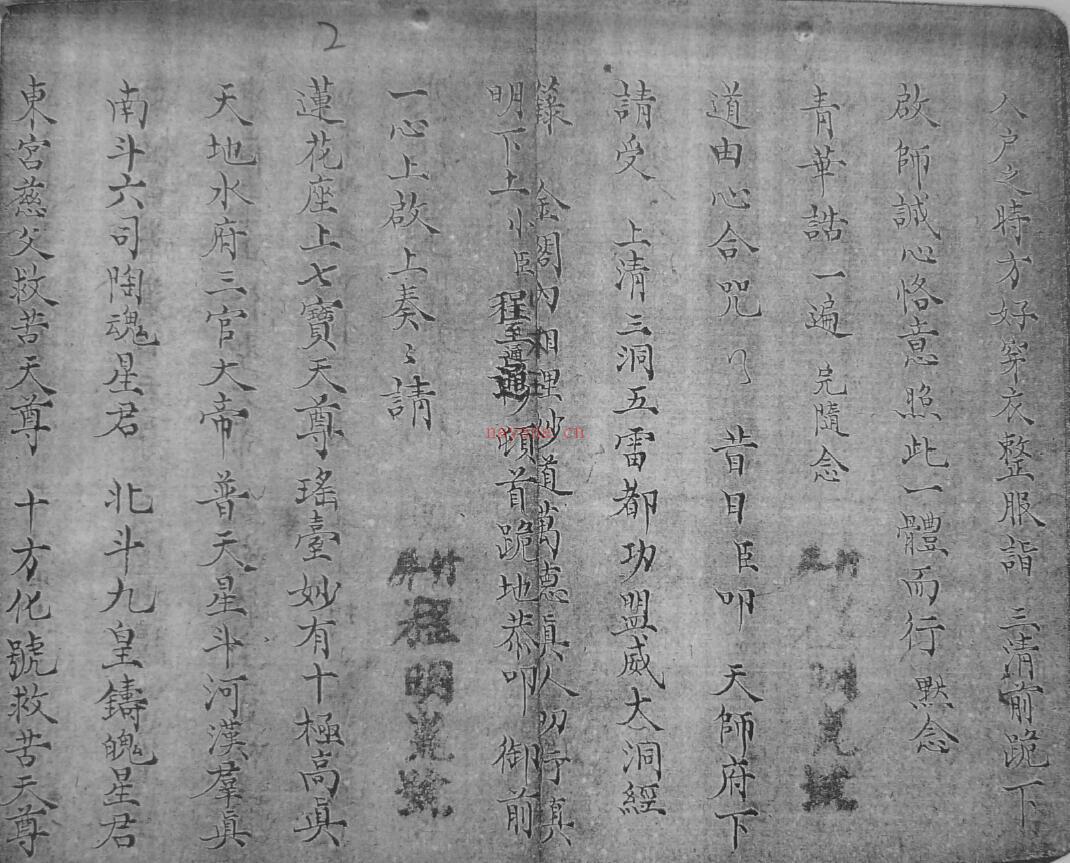 2
入户之時方好穿衣整服詣 三清前跪下
啟師誠心恪意照此一體而行 默念
青華誥一遍 完隨念
道由心合咒 昔日臣叩 天師府下
請受 上清三洞五雷都功盟威大洞經
籙 金闕內相理妙道萬德真人
明下土小臣程 通 頓首跪地恭叩 御前
一心上啟上奏〻請
竹 程明
蓮花座上七寶天尊 瑤臺妙有十極高真
天地水府三官大帝 普天星斗河漢羣真
南斗六司陶魂星君 北斗九皇鑄魄星君
東宮慈父救苦天尊 十方化號救苦天尊